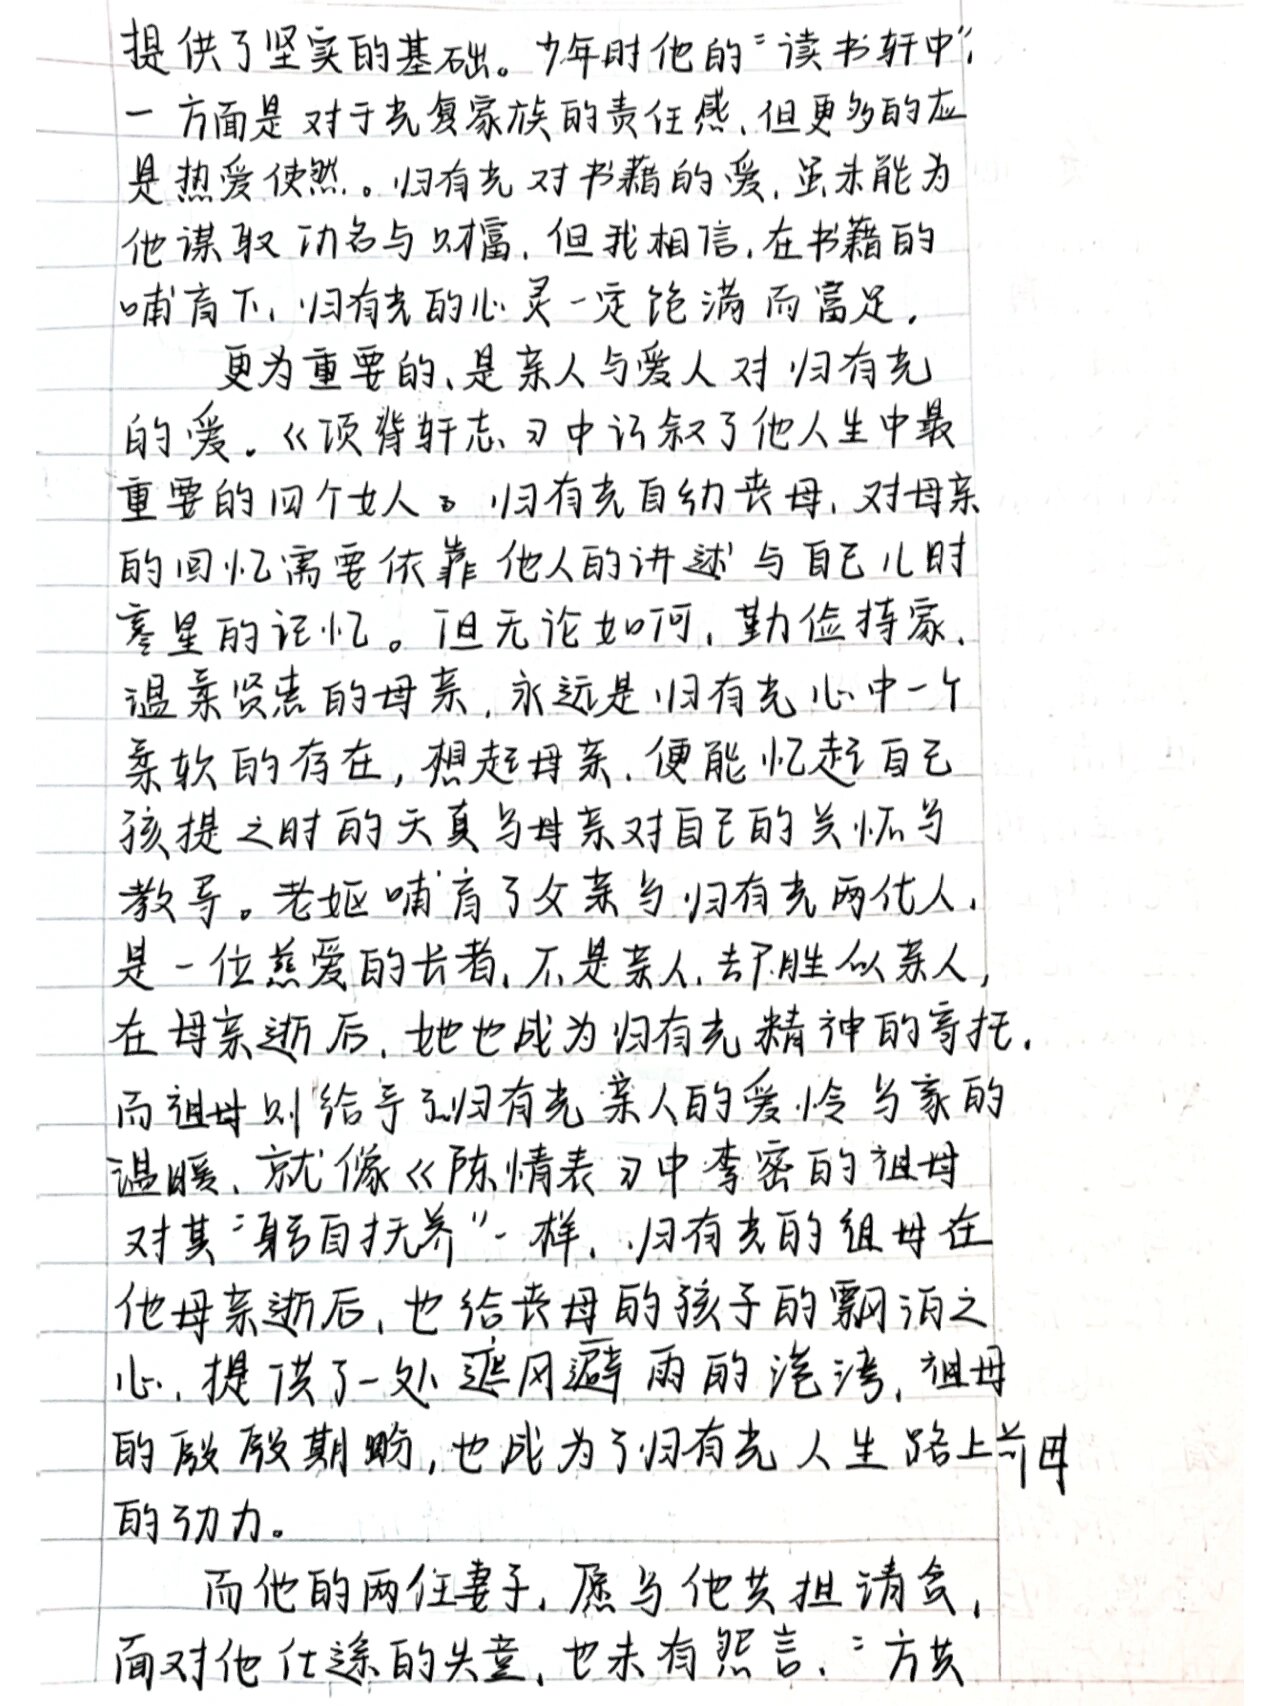 提供了坚实的基础。少年时他的“读书轩中”，
一方面是对于光复家族的责任感，但更多的应
是热爱使然。归有光对书藉的爱，虽未能为
他谋取功名与财富，但我相信，在书藉的
哺育下，归有光的心灵一定饱满而富足。
更为重要的，是亲人与爱人对归有光
的爱。《项脊轩志》中记叙了他人生中最
重要的四个女人。归有光自幼丧母，对母亲
的回忆需要依靠他人的讲述与自己儿时
零星的记忆。但无论如何，勤俭持家、
温柔贤惠的母亲，永远是归有光心中一个
柔软的存在，想起母亲，便能忆起自己
孩提之时的天真与母亲对自己的关怀与
教导。老妪哺育了父亲与归有光两代人，
是一位慈爱的长者，不是亲人，却胜似亲人，
在母亲逝后，她也成为归有光精神的寄托。
而祖母则给予了归有光亲人的爱怜与家的
温暖，就像《陈情表》中李密的祖母
对其“躬自抚养”一样，归有光的祖母在
他母亲逝后，也给丧母的孩子的飘泊之
心，提供了一处遮风避雨的港湾，祖母
的殷殷期盼，也成为了归有光人生路上前进
的动力。
而他的两任妻子，愿与他共担清贫，
面对他仕途的失意，也未有怨言，“方共